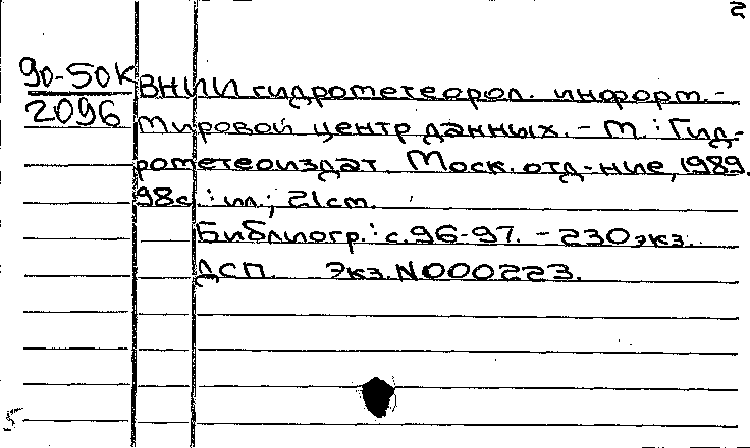 2
90-50К
2096
ВНИИ гидрометеорол. информ.-
Мировой центр данных. - М. : Гид-
рометеоиздат. Моск. отд-ние, 1989.
98с. : ил.; 21см.
Библиогр. : с.96-97. - 230 экз.
ДСП. Экз. N000223.
5